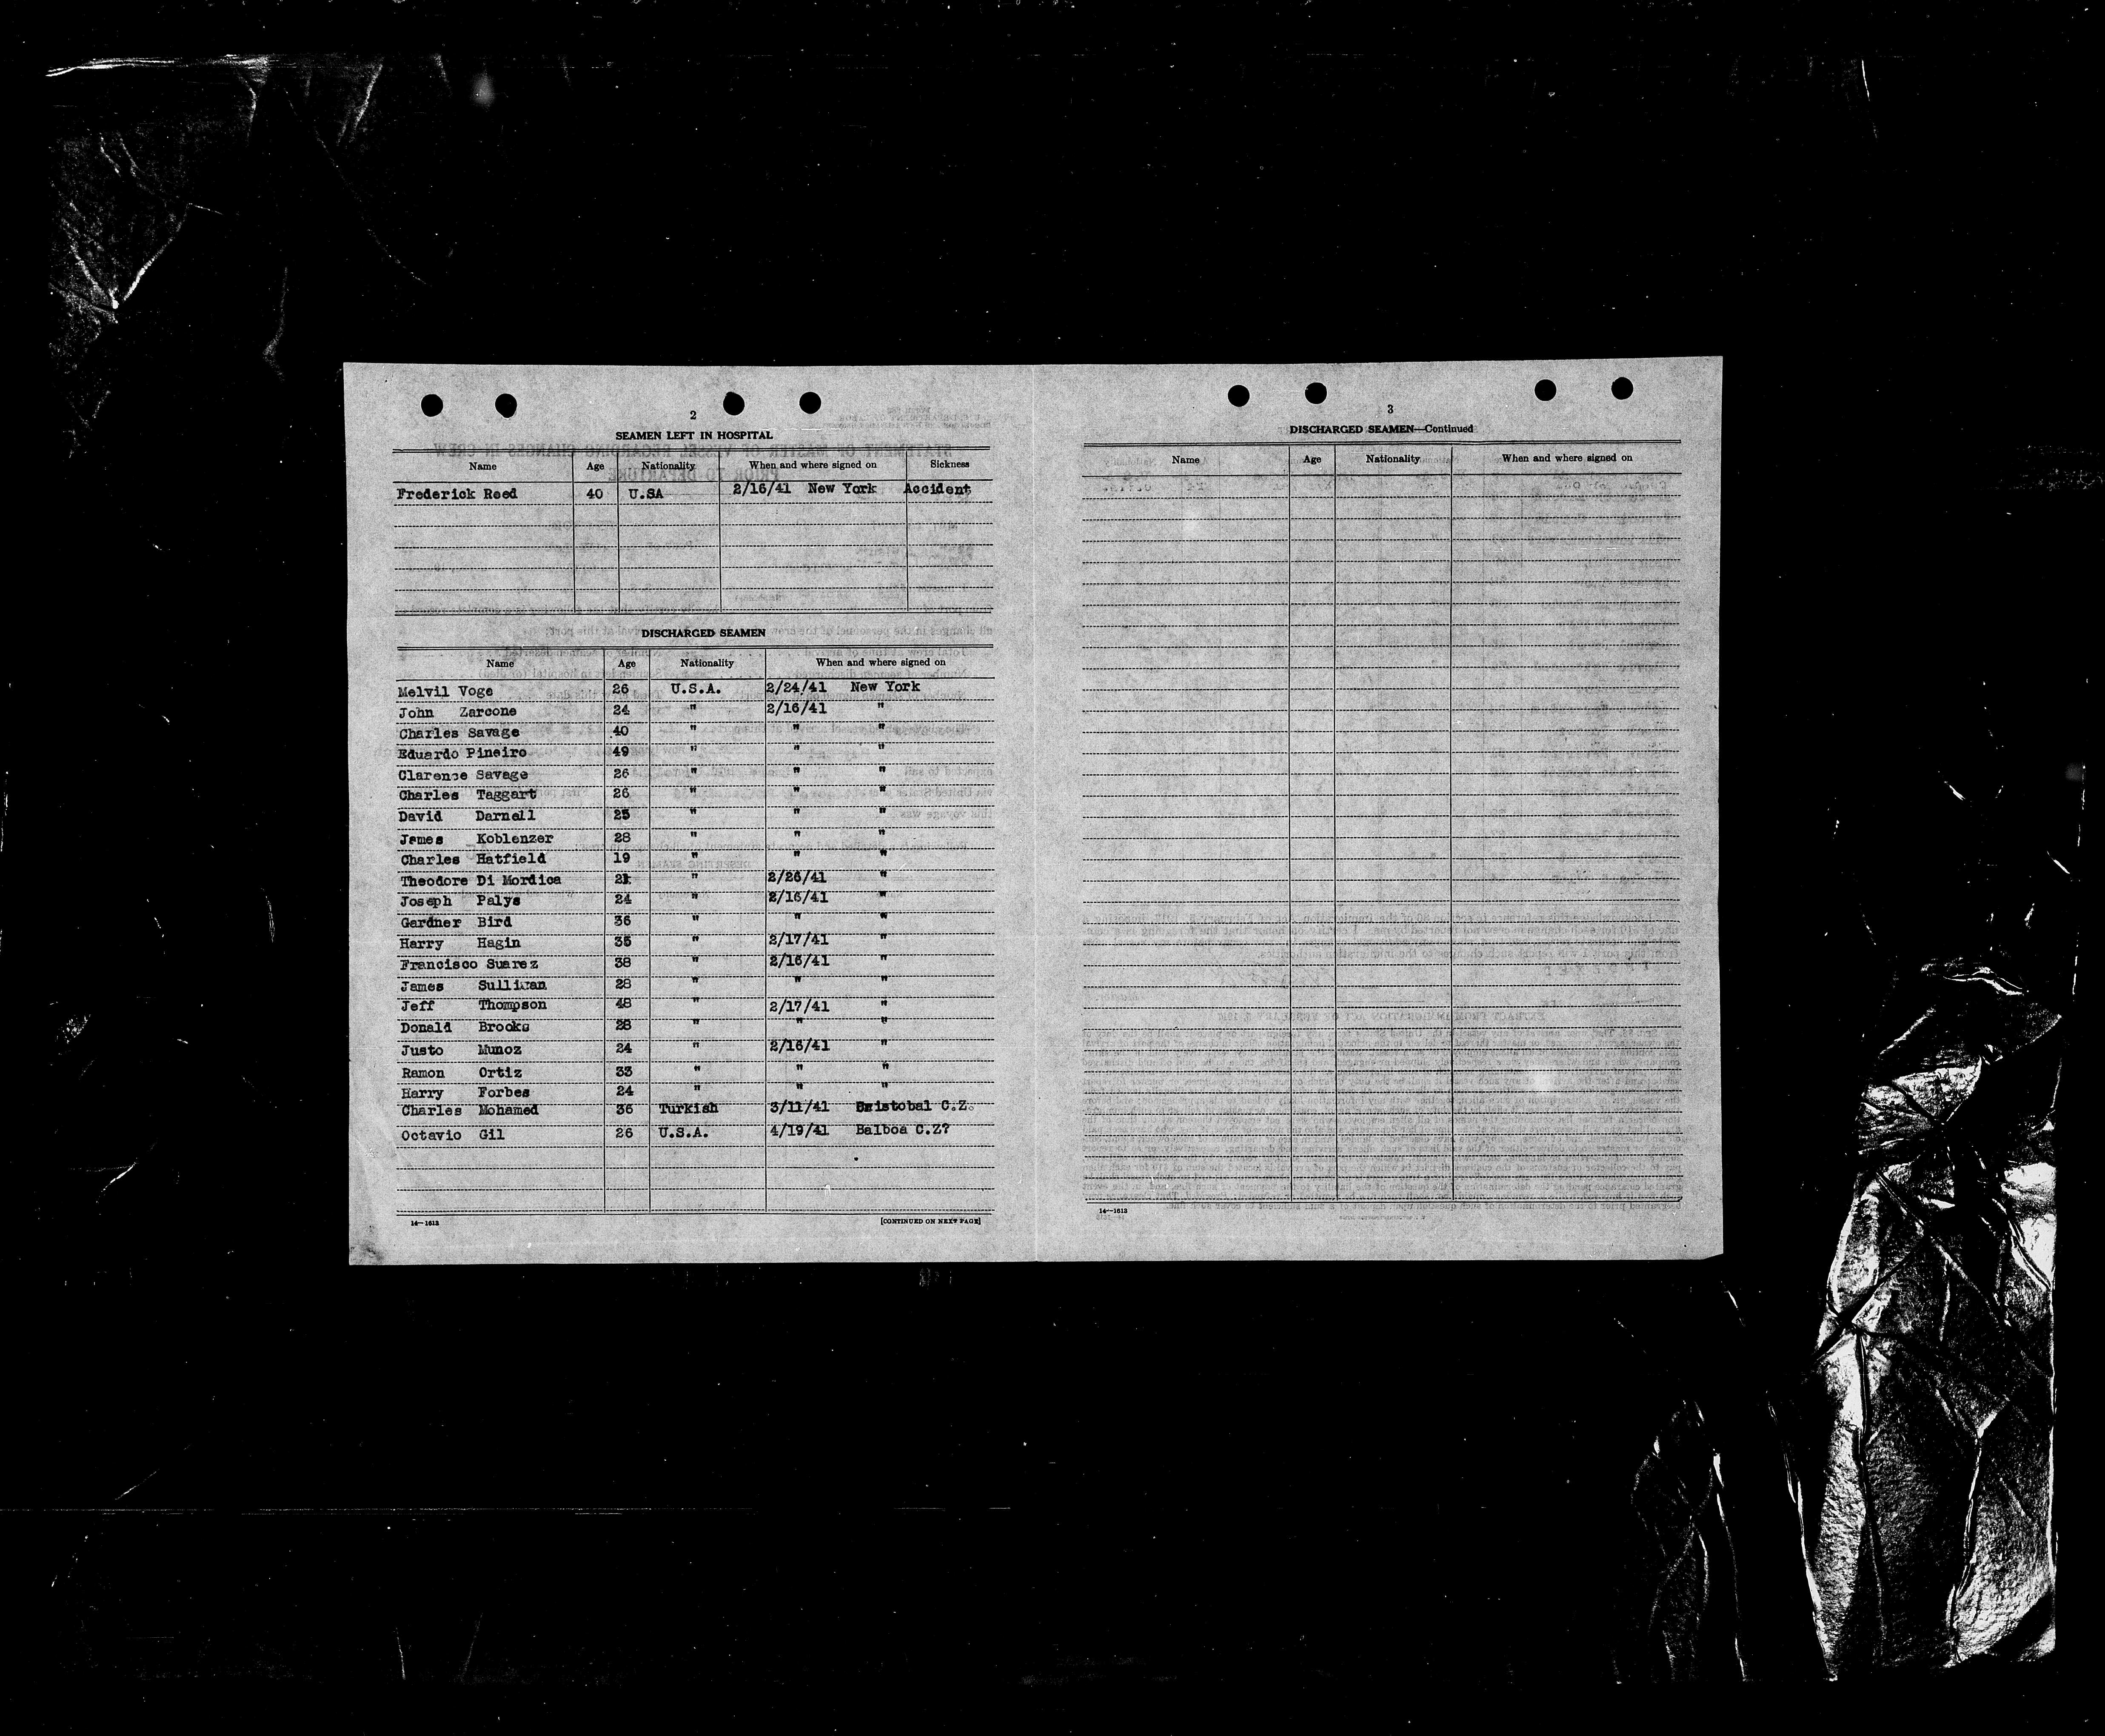 2
SEAMEN LEFT IN HOSPITAL
Name Age Nationality When and where signed on Sickness
Frederick Reed 40 U.SA 2/16/41 New York Accident
DISCHARGED SEAMEN
Name Age Nationality When and where signed on
Melvil Voge 26 U.S.A. 2/24/41 New York
John Zarcone 24 " 2/16/41 "
Charles Savage 40 " " "
Eduardo Pineiro 49 " " "
Clarence Savage 26 " " "
Charles Taggart 26 " " "
David Darnell 25 " " "
James Koblenzer 28 " " "
Charles Hatfield 19 " " "
Theodore Di Mordica 21 " 2/26/41 "
Joseph Palys 24 " 2/16/41 "
Gardner Bird 36 " " "
Harry Hagin 35 " 2/17/41 "
Francisco Suarez 38 " 2/16/41 "
James Sullivan 28 " " "
Jeff Thompson 48 " 2/17/41 "
Donald Brooks 28 " " "
Justo Munoz 24 " 2/16/41 "
Ramon Ortiz 33 " " "
Harry Forbes 24 " " "
Charles Mohamed 36 Turkish 3/11/41 C.Z.
Octavio Gil 26 U.S.A. 4/19/41 Balboa C.Z?
14—1613
[CONTINUED ON NEXT PAGE]
3
DISCHARGED SEAMEN—Continued
Name Age Nationality When and where signed on
14—1613